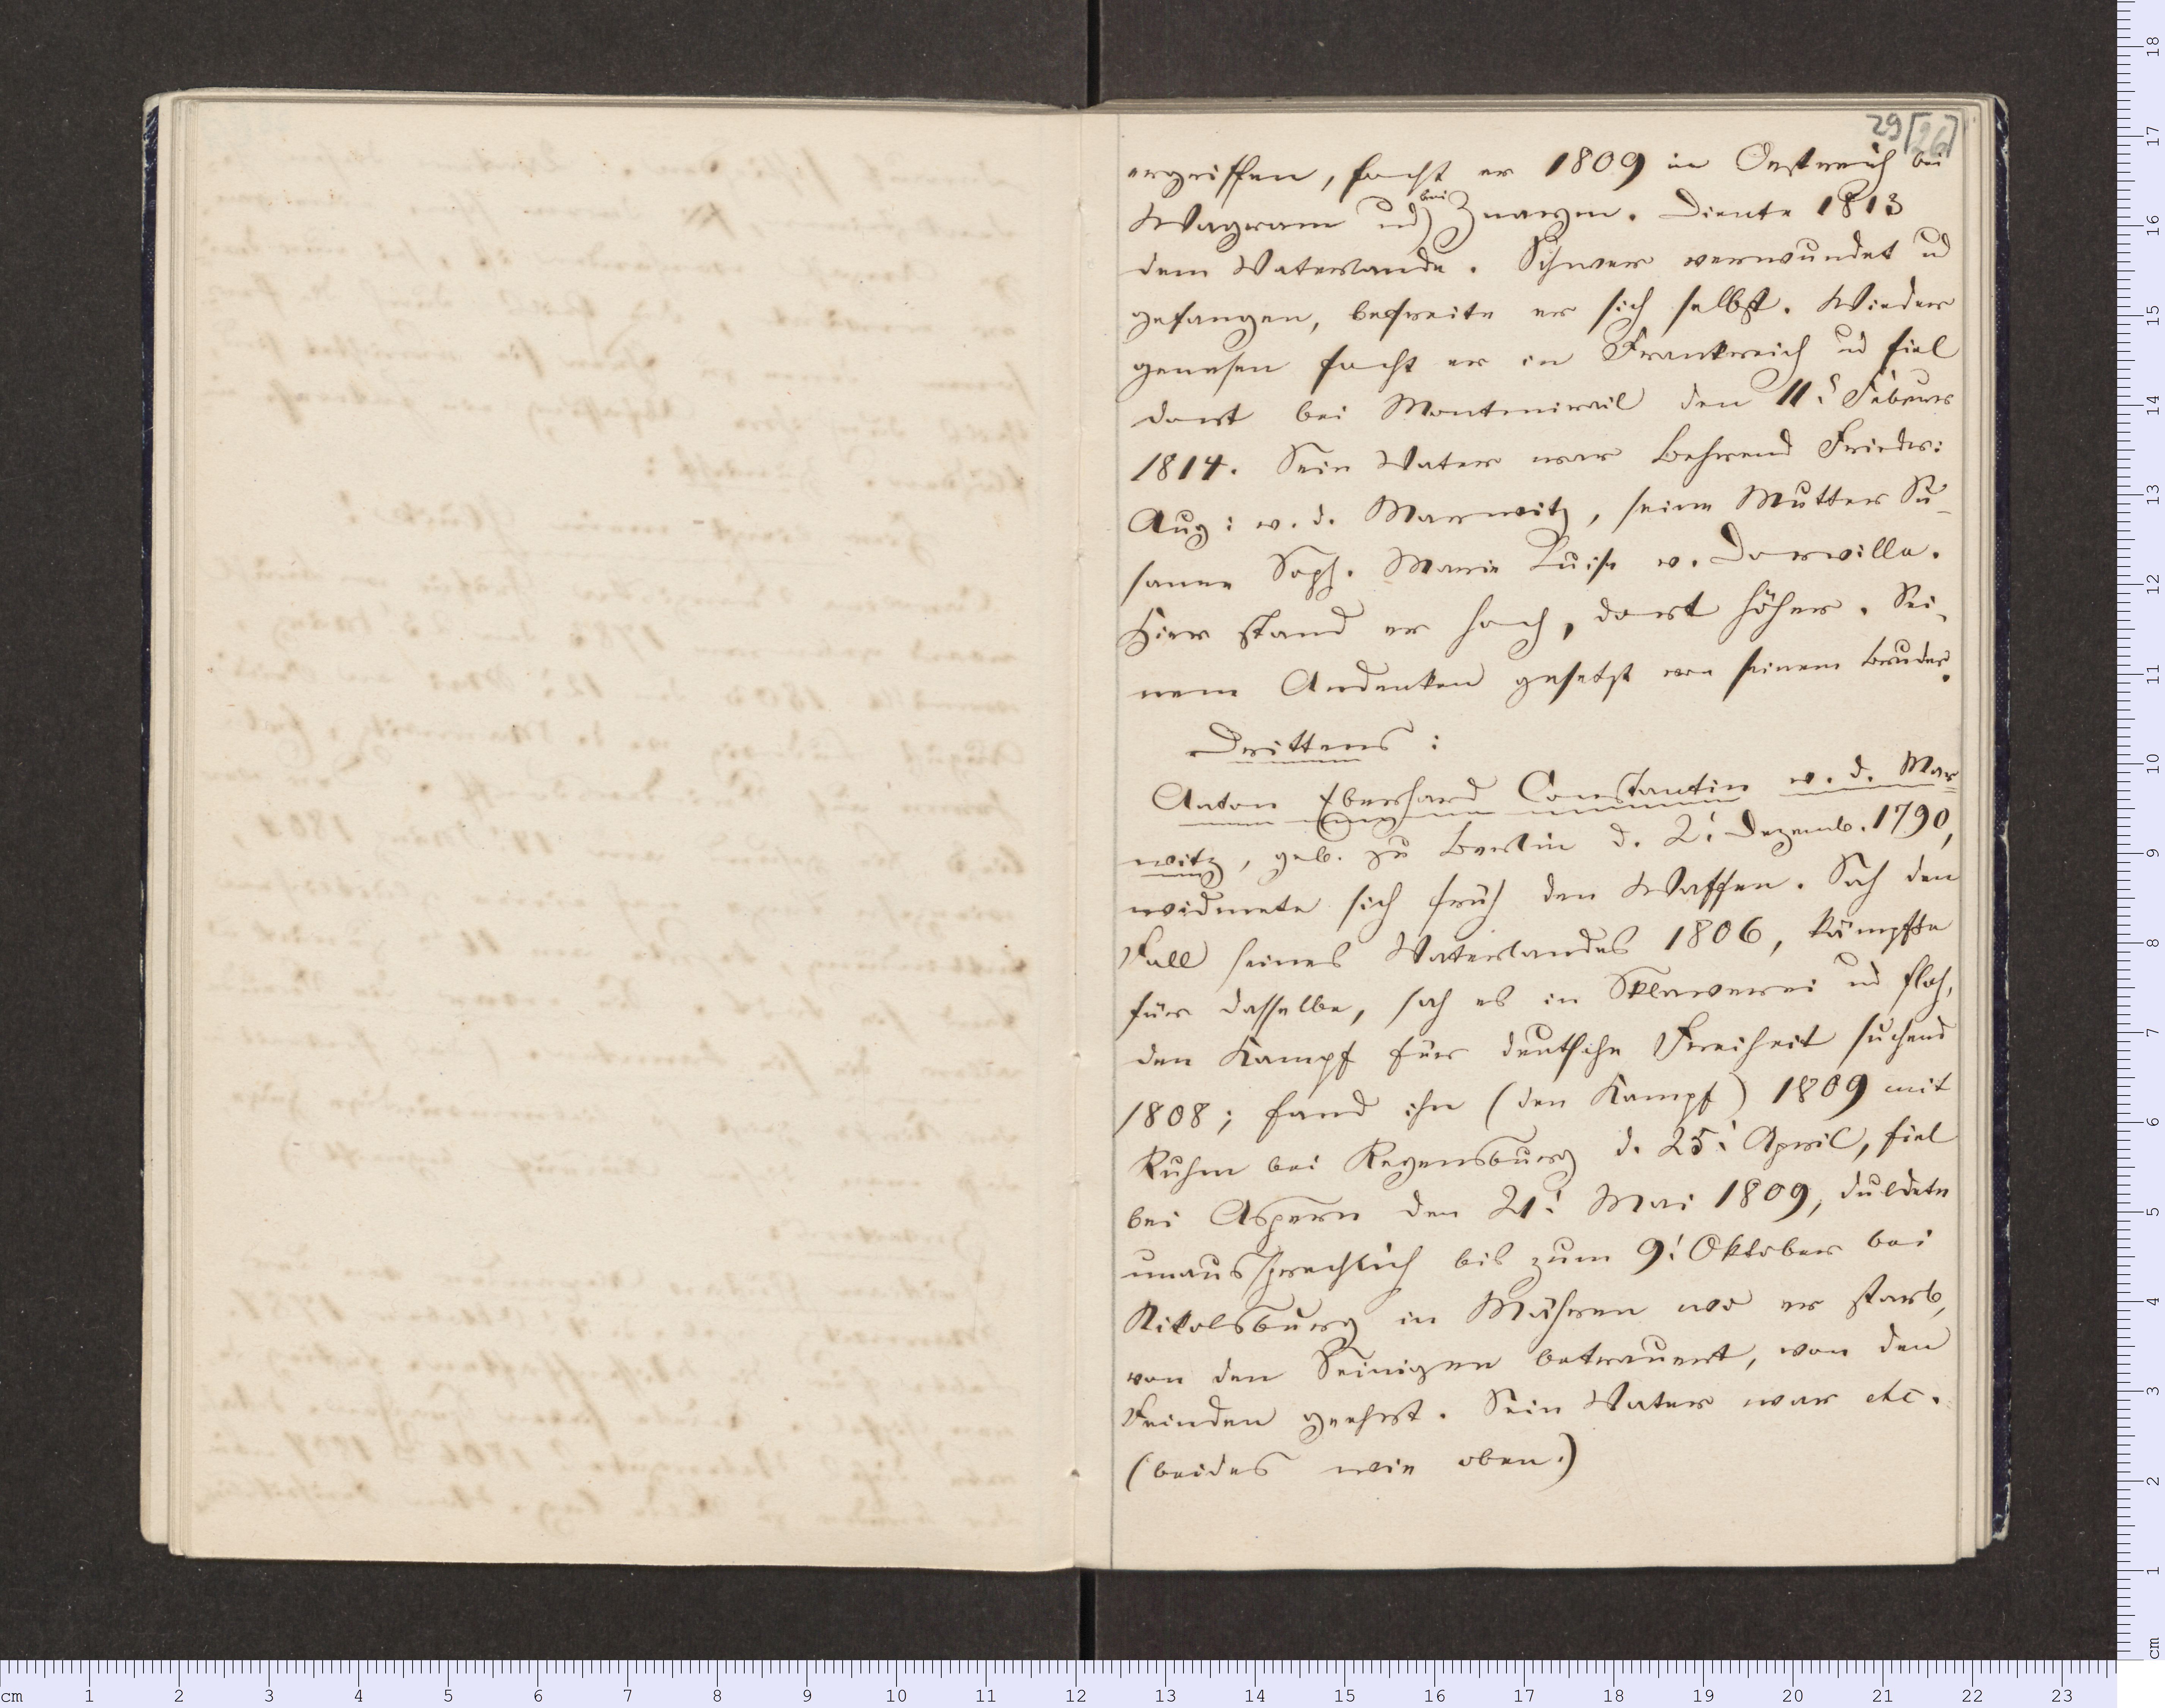 29 [26]
ergriffen, focht er 1809 in Oestreich bei
Wagram ud bei Znaym. Diente 1813
dem Vaterlande. Schwer verwundet ud
gefangen, befreite er sich selbst. Wieder
genesen focht er in Frankreich ud fiel
dort bei Montmirail den 11. Febuar
1814. Sein Vater war Behrend Friedr:
Aug: v. d. Marwitz, seine Mutter Su-
sanne Soph. Marie Luise v. Dorville.
Hier stand er hoch, dort höher. Sei-
nem Andenken gesetzt von seinem Bruder.
Drittens:
Anton Eberhard Constantin v. d. Mar=
witz, geb. zu Berlin d. 2. Dezemb. 1790,
widmete sich früh den Waffen. Sah den
Fall seines Vaterlandes 1806, kämpfte
für dasselbe, sah es in Sklaverei ud floh,
den Kampf für deutsche Freiheit suchend
1808; fand ihn (den Kampf) 1809 mit
Ruhm bei Regensburg d. 25. April, fiel
bei Aspern den 21. Mai 1809, duldete
unaussprechlich bis zum 9. Oktober bei
Nikolsburg in Mähren wo er starb,
von den Seinigen betrauert, von den
Feinden geehrt. Sein Vater war etc.
(beides wie oben.)